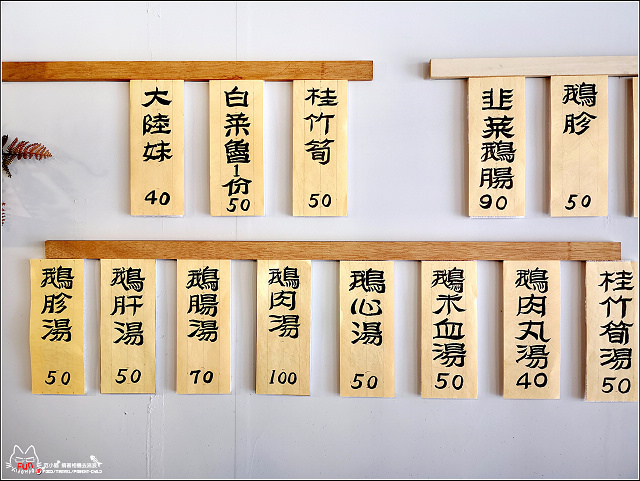 大陸妹
40
白菜魯1份
50
桂竹筍
50
韭菜鵝腸
90
鵝胗
50
鵝胗湯
50
鵝肝湯
50
鵝腸湯
70
鵝肉湯
100
鵝心湯
50
鵝米血湯
50
鵝肉丸湯
40
桂竹筍湯
50
FUN
FOOD/TRAVEL/PARENT-CHILD